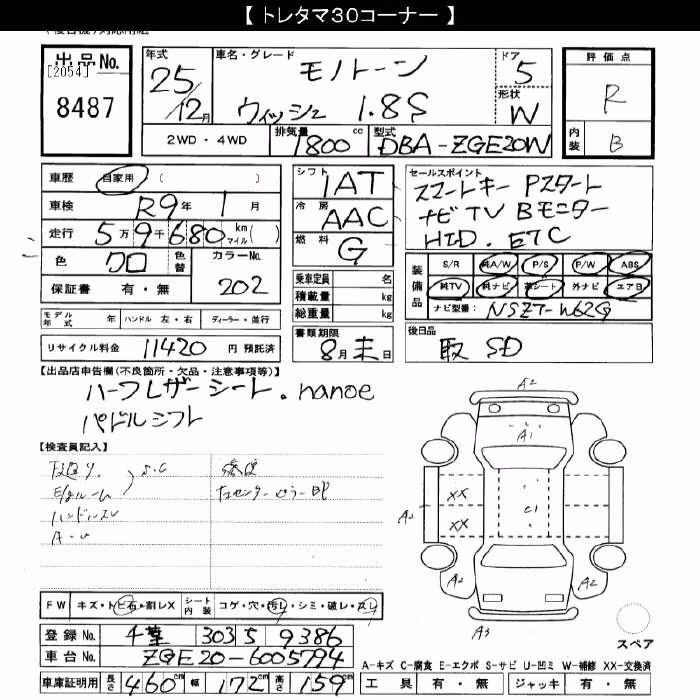 【 トレタマ30コーナー 】
出品No.
[2054]
8487
年式
25
12月
車名・グレード
モノトーン
ウィッシュ 1.8S
ドア
5
形状
W
評価点
R
内装
B
2WD・4WD
排気量
1800cc
型式
DBA-ZGE20W
車歴 自家用 ( )
車検 R9年 1月
走行 5万9千680 km マイル( )
色 クロ 色替
カラーNo.
202
保証書 有・無
モデル年式 年 ハンドル 左・右 ディーラー・並行
リサイクル料金 11420 円 預託済
シフト 1AT
冷房 AAC
燃料 G
乗車定員 名
積載量 kg
総重量 kg
書類期限
8月末日
セールスポイント
スマートキー Pスタート
ナビTV Bモニター
HID. ETC
装備品
S/R 純A/W P/S P/W ABS
純TV 純ナビ 革シート 外ナビ エアB
ナビ型番: NSZT-W62G
後日品
取 SD
【出品店申告欄(不良箇所・欠品・注意事項等)】
ハーフレザーシート. nanoe
パドルシフト
【検査員記入】
下廻り S.C
ハンドルスレ
A-U
FW キズ・トビ石・割レX シート内装 コゲ・穴・汚レ・シミ・破レ・スレ
登録No. 千葉 303 5 9386
車台No. ZGE20-6005794
車庫証明用 長さ 460cm 幅 172cm 高さ 159cm
A2
A1
XX
XX
C1
A2
A2
A2
A3
スペア
A-キズ C-腐食 E-エクボ S-サビ U-凹ミ W-補修 XX-交換済
工具 有・無 ジャッキ 有・無